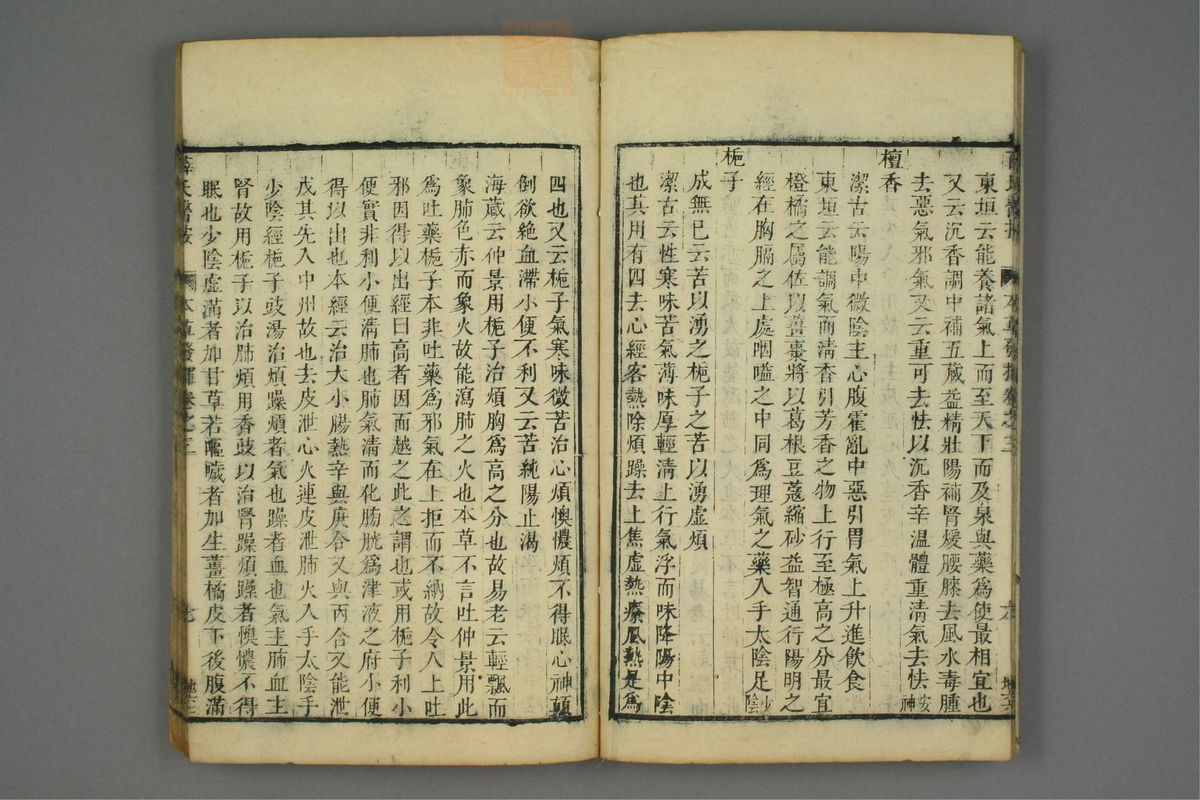 東垣云能養諸氣上而至天下而及泉與藥爲使最相宜也
又云沉香調中補五藏益精壯陽補腎煖腰膝去風水毒腫
去惡氣邪氣又云重可去怯以沉香辛溫體重淸氣去怯安神
檀香
潔古云陽中微陰主心腹霍亂中惡引胃氣上升進飮食
東垣云能調氣而淸香引芳香之物上行至極高之分最宜
橙橘之屬佐以薑棗將以葛根豆蔻縮砂益智通行陽明之
經在胸膈之上處咽嗌之中同爲理氣之藥入手太陰足少陰
梔子
成無已云苦以湧之梔子之苦以湧虛煩
潔古云性寒味苦氣薄味厚輕淸上行氣浮而味降陽中陰
也其用有四去心經客熱除煩躁去上焦虛熱療風熱是爲
四也又云梔子氣寒味微苦治心煩懊憹煩不得眠心神顚
倒欲絶血滯小便不利又云苦純陽止渴
海藏云仲景用梔子治煩胸爲高之分也故易老云輕飄而
象肺色赤而象火故能瀉肺之火也本草不言吐仲景用此
爲吐藥梔子本非吐藥爲邪氣在上拒而不納故令人上吐
邪因得以出經曰高者因而越之此之謂也或用梔子利小
便實非利小便淸肺也肺氣淸而化膀胱爲津液之府小便
得以出也本經云治大小腸熱辛與庚合又與丙合又能泄
戊其先入中州故也去皮泄心火連皮泄肺火入手太陰手
少陰經梔子豉湯治煩躁煩者氣也躁者血也氣主肺血主
腎故用梔子以治肺煩用香豉以治腎躁煩躁者懊憹不得
眠也少陰虛滿者加甘草若嘔噦者加生薑橘皮下後腹滿
薛氏醫按
本草發揮卷之三
七
地三